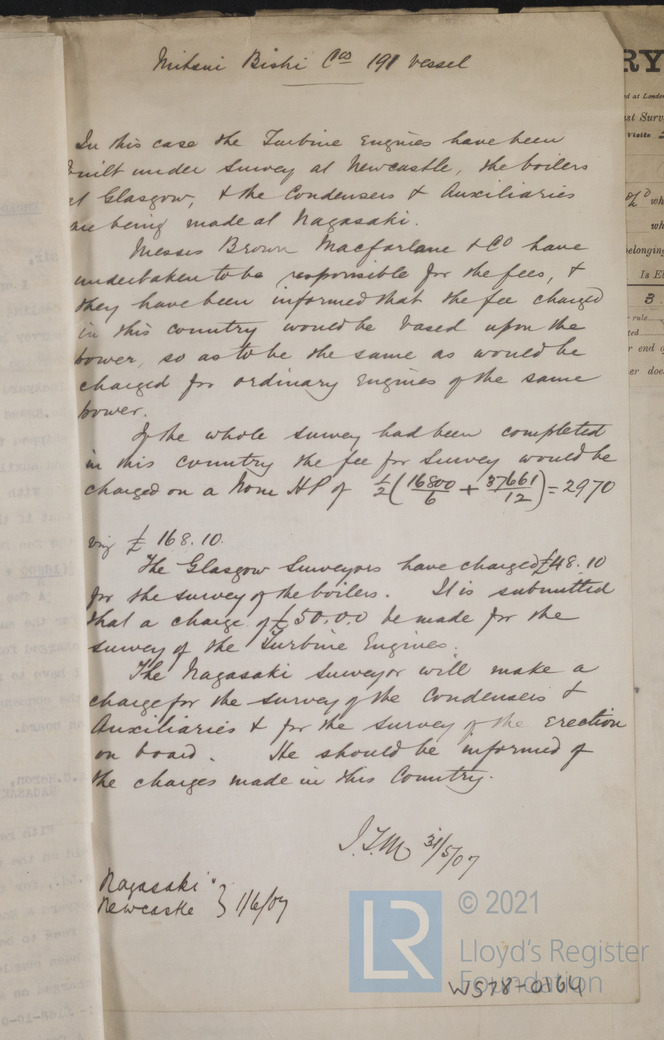 Mitsui Bishi Cos 191 vessel
In this case the Turbine Engines have been
built under survey at Newcastle, the boilers
at Glasgow, & the Condensers & Auxiliaries
are being made at Nagasaki.
Messrs Brown Macfarlane & Co have
undertaken to be responsible for the fees, &
they have been informed that the fee charged
in this country would be based upon the
power, so as to be the same as would be
charged for ordinary Engines of the same
power.
If the whole survey had been completed
in this country the fee for survey would be
charged on a Nom HP of 1/2 (16800/6 + 37661/12) = 2970
£168.10.
The Glasgow Surveyors have charged £48.10
for the survey of the boilers. It is submitted
that a charge of £50.0.0 be made for the
survey of the Turbine Engines.
The Nagasaki Surveyor will make a
charge for the survey of the Condensers &
Auxiliaries & for the survey of the Erection
on board. He should be informed of
the charges made in this Country.
J.T.M 31/5/07
Nagasaki
Newcastle } 1/6/07
LR
© 2021
Lloyd's Register
Foundation
WS78-0164
RY
st Surv
Visits
belonging
Is El
3
rule
ted
r end of
er doe